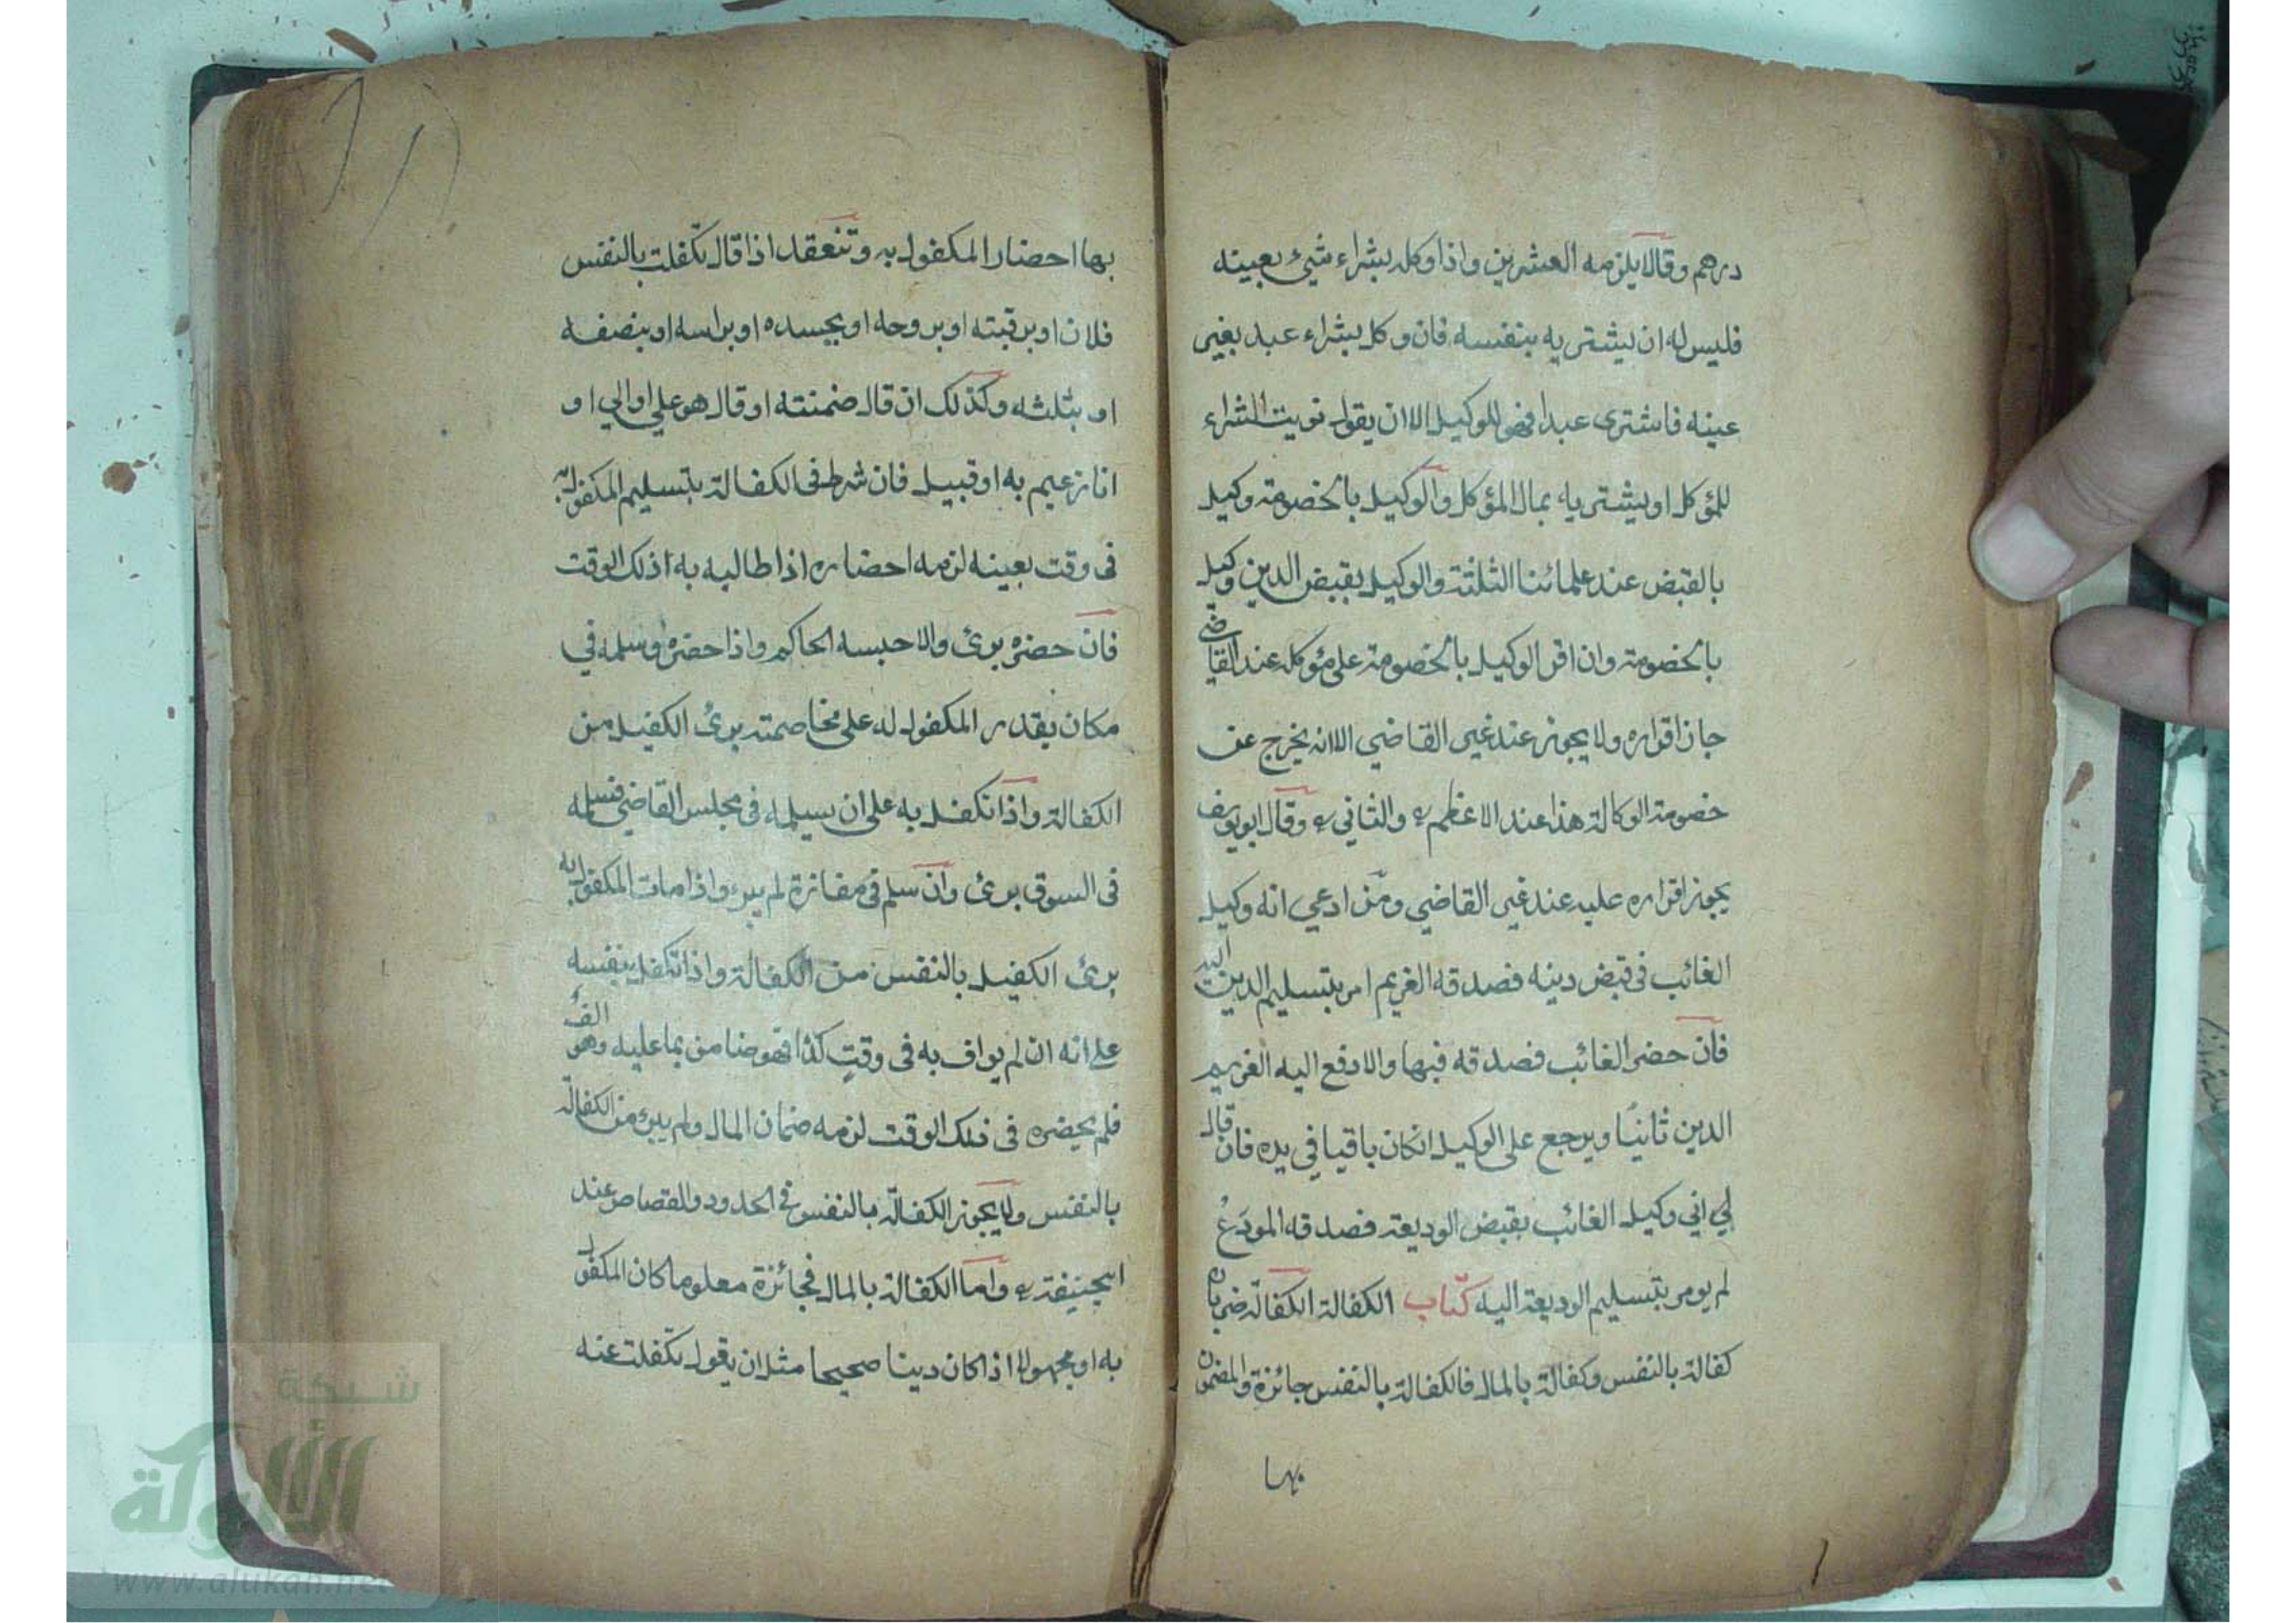 درهم وقالا يلزمه العشرين واذا وكله بشراء شيئ بعينه
فليس له ان يشتريه بنفسه فان وكل بشراء عبد بغير
عينه فاشترى عبدا فهو للوكيل الا ان يقول نويت الشراء
للمؤكل او يشتريه بمال المؤكل والوكيل بالخصومة وكيل
بالقبض عند علمائنا الثلثة والوكيل بقبض الدين وكيل
بالخصومة وان اقر الوكيل بالخصومة على مؤكله عند القاضي
جاز اقراره ولا يجوز عند غير القاضي الا انه يخرج عن
خصومة الوكالة هذا عند الاعظم والثاني وقال ابو يوسف
يجوز اقراره عليه عند غير القاضي ومن ادعي انه وكيل
الغائب في قبض دينه فصدقه الغريم امر بتسليم الدين اليه
فان حضر الغائب فصدقه فبها والا دفع اليه الغريم
الدين ثانيا ويرجع على الوكيل انكان باقيا في يده فان قال
لي اني وكيل الغائب بقبض الوديعة فصدقه المودع
لم يومر بتسليم الوديعة اليه كتاب الكفالة الكفالة ضربان
كفالة بالنفس وكفالة بالمال فالكفالة بالنفس جائزة والمضمون
بها
بها احضار المكفول به وتنعقد اذا قال تكفلت بالنفس
فلان او برقبته او بروحه او بجسده او براسه او بنصفه
او بثلثه وكذلك ان قال ضمنته او قال هو علي او الي او
انا زعيم به او قبيل فان شرط في الكفالة بتسليم المكفول به
في وقت بعينه لزمه احضاره اذا طالبه به اذلك الوقت
فان حضره برئ والا حبسه الحاكم واذا حضره وسلمه في
مكان يقدر المكفول له على مخاصمته برئ الكفيل من
الكفالة واذا تكفل به على ان سيلمه في مجلس القاضي فسلمه
في السوق برئ وان سلم في مفازة لم يبرء واذا مات المكفول به
برئ الكفيل بالنفس من الكفالة واذا تكفل بنفسه
على انه ان لم يواف به في وقت كذا فهو ضامن بما عليه وهو الف
فلم يحضره في ذلك الوقت لزمه ضمان المال ولم يبرء من الكفالة
بالنفس ولا يجوز الكفالة بالنفس في الحدود والقصاص عند
ابيحنيفة واما الكفالة بالمال فجائزة معلوما كان المكفول
به او مجهولا اذا كان دينا صحيحا مثل ان يقول تكفلت عنه
شبكة
الألوكة
www.alukah.net